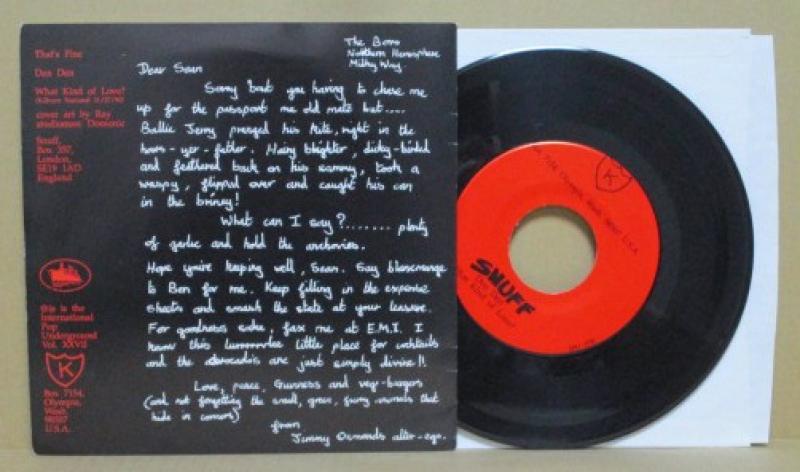 That's Fine
Dan Dan
What Kind of Love?
(Kilburn National 31/10/90)
cover art by Ray
studioman Domonic
Snuff,
Box 397,
London,
SE19 1AD
England
this is the
International
Pop
Underground
Vol. XXVII
K
Box 7154,
Olympia,
Wash.
98507
U.S.A.
The Bom
Northern Hemisphere
Milky Way.
Dear Sean
Sorry 'bout you having to chase me
up for the passport me old mate but....
Ballie Jerry pranged his kite, right in the
how-yer-father. Hairy blighter, dicky-birded
and feathered back on his sammy, took a
waspy, flipped over and caught his can
in the briney!
What can I say?........ plenty
of garlic and hold the anchovies.
Hope you're keeping well, Sean. Say blancmange
to Ben for me. Keep filling in the expense
sheets and smash the state at your leasure.
For goodness sake, fax me at E.M.I. I
know this little place for cocktails
and the avocado's are just simply divine!!
Love, peace, Guinness and vege-burgers
(and not forgetting the small, green, furry animals that
hide in corners)
from
Jimmy Osmonds alter-ego.
K
7154 Olympia, Wash. 98507 U.S.A.
SNUFF
Kind of Love?